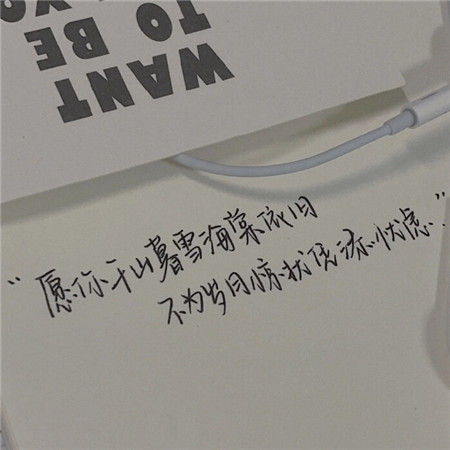 WANT
TO BE
YO
“愿你千山暮雪海棠依旧
不为岁月惊扰凭添忧虑”